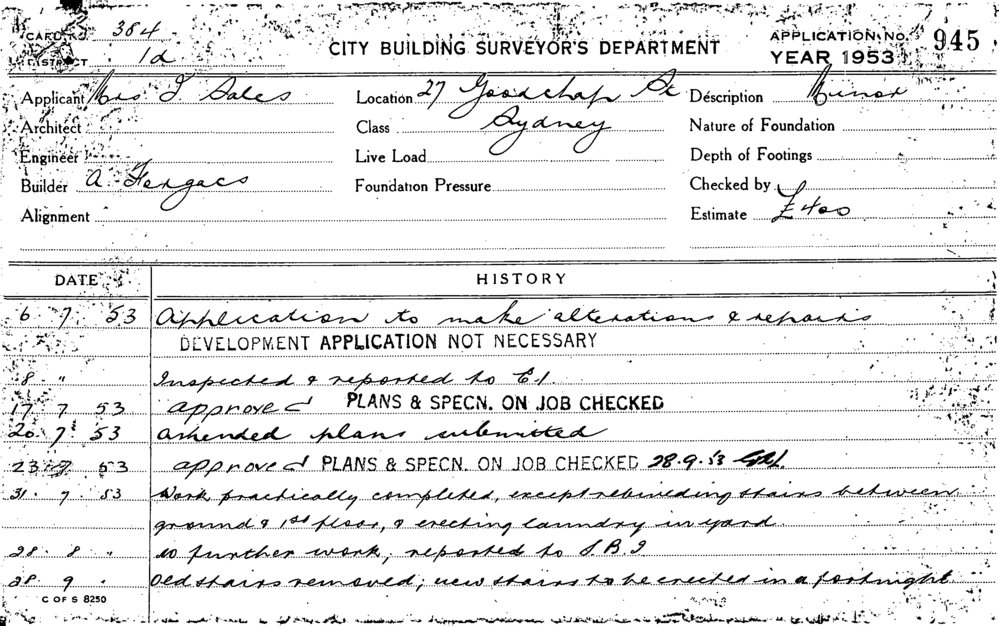 CARD No. 384
DISTRICT 1d
CITY BUILDING SURVEYOR'S DEPARTMENT
APPLICATION No. 945
YEAR 1953
Applicant Mrs I Sales
Location 27 Goodchap St
Description Minor
Architect
Class Sydney
Nature of Foundation
Engineer
Live Load
Depth of Footings
Builder A. Fergacs
Foundation Pressure
Checked by
Alignment
Estimate £400
DATE HISTORY
6 7 53 Application to make alterations & repairs
DEVELOPMENT APPLICATION NOT NECESSARY
8 " Inspected & reported to C.I.
17 7 53 approved PLANS & SPECN. ON JOB CHECKED
20 7 53 amended plans submitted
23 7 53 approved PLANS & SPECN. ON JOB CHECKED 28.9.53
31. 7. 53 Work practically completed, except rebuilding stairs between
ground & 1st floor, & erecting laundry in yard
28. 8 " no further work; reported to S.B.I
28. 9 " Old stairs removed; new stairs to be erected in a fortnight.
C OF S 8250